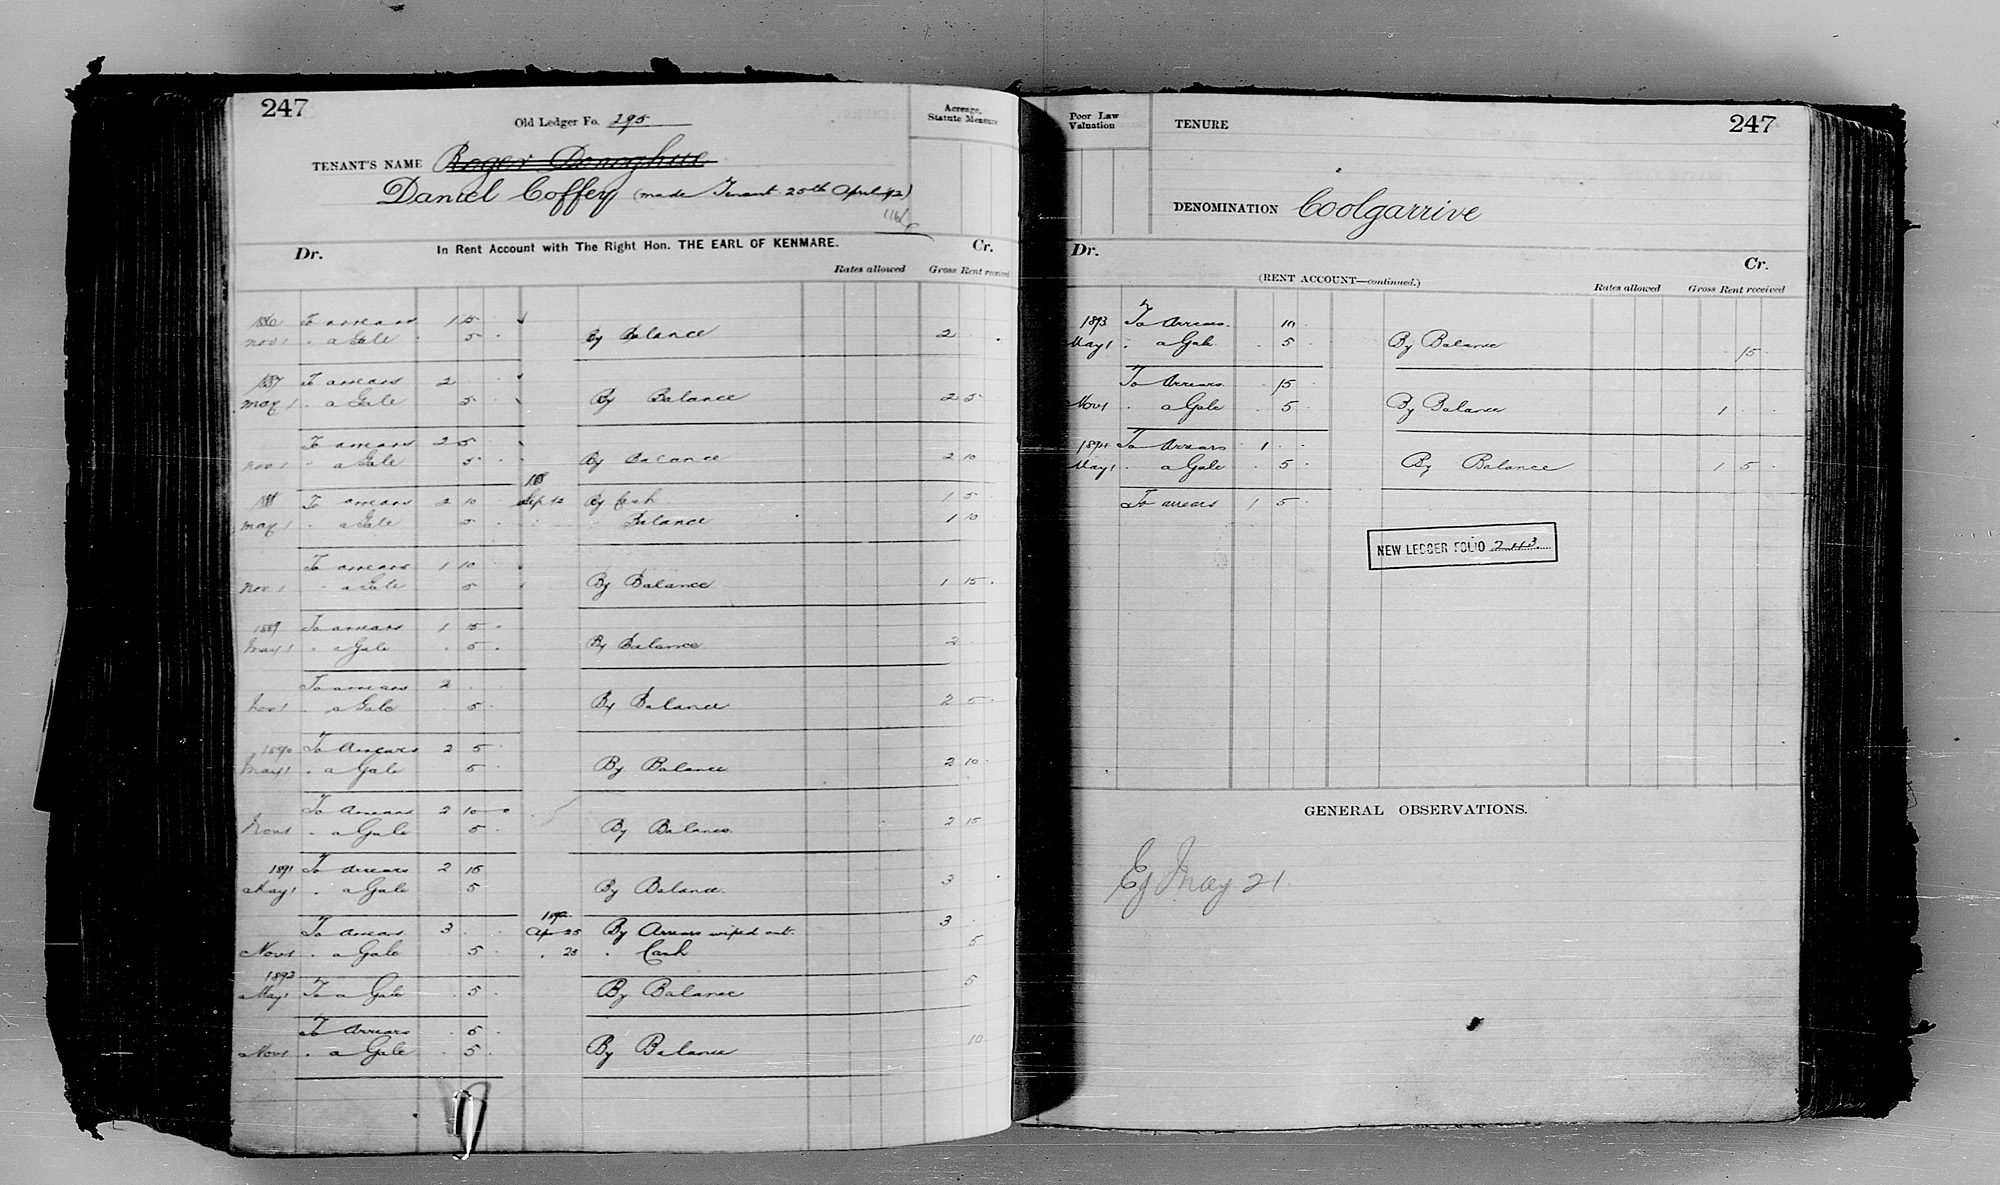 247
Old Ledger Fo. 295
Acreage, Statute Measure
TENANT'S NAME Roger Donoghue
Daniel Coffey (made Tenant 25th April 92)
In Rent Account with The Right Hon. THE EARL OF KENMARE.
Dr. Cr.
Rates allowed Gross Rent received
1886 To arrears 1 15
Nov 1 . a Gale . 5 . By Balance 2 .
1887 To arrears 2
May 1 . a Gale 5 By Balance 2 5
To arrears 2 5
Nov 1 " a Gale 5 By Balance 2 10
188
1888 To arrears 2 10 Sep 12 By Cash 1 5
May 1 . a Gale 5 " Balance 1 10
To arrears 1 10
Nov 1 " a Gale 5 By Balance 1 15 .
1889 To arrears 1 15
May 1 . a Gale . 5 . By Balance 2
To arrears 2
Nov 1 . a Gale . 5 . By Balance 2 5
1890 To Arrears 2 5
May 1 . a Gale 5 By Balance 2 10
To Arrears 2 10
Nov 1 . a Gale 5 By Balance 2 15
1891 To Arrears 2 15
May 1 . a Gale 5 By Balance 3
1892
To Arrears 3 . Apr 25 By Arrears wiped out. 3
Nov 1 . a Gale . 5 . " 25 . Cash 5
1892
May 1 To a Gale . 5 . By Balance 5
To Arrears . 5
Nov 1 . a Gale . 5 . By Balance 10
Poor Law Valuation
TENURE
247
DENOMINATION Coolgarrive
Dr. Cr.
(RENT ACCOUNT—continued.)
Rates allowed Gross Rent received
1893 To Arrears . 10
May 1 . a Gale . 5 . By Balance . 15
To Arrears . 15
Nov 1 . a Gale . 5 By Balance 1
1894 To Arrears . 1 . .
May 1 . a Gale . 5 . By Balance 1 5 .
To arrears 1 5
NEW LEDGER FOLIO 243.
GENERAL OBSERVATIONS.
Ej May 21